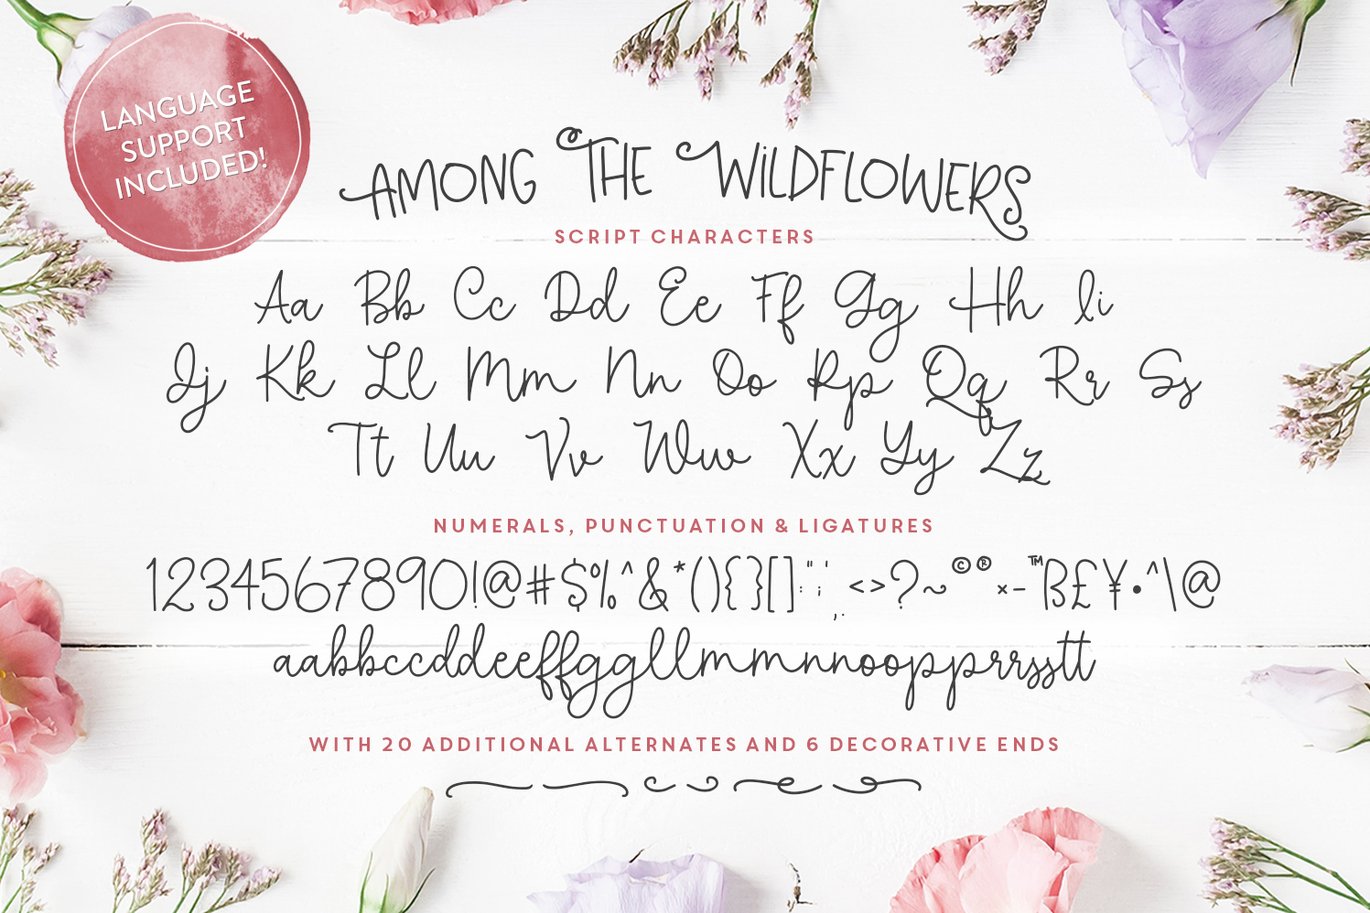 LANGUAGE
SUPPORT
INCLUDED!
AMONG THE WiLDFLOWERS
SCRIPT CHARACTERS
Aa Bb Cc Dd Ee Ff Gg Hh Ii
Jj Kk Ll Mm Nn Oo Pp Qq Rr Ss
Tt Uu Vv Ww Xx Yy Zz
NUMERALS, PUNCTUATION & LIGATURES
1234567890!@#$%^&*(){}[]:";',.<>?~©®×-™ß£¥•^\@
aabbccddeeffggllmmnnoopprrsstt
WITH 20 ADDITIONAL ALTERNATES AND 6 DECORATIVE ENDS